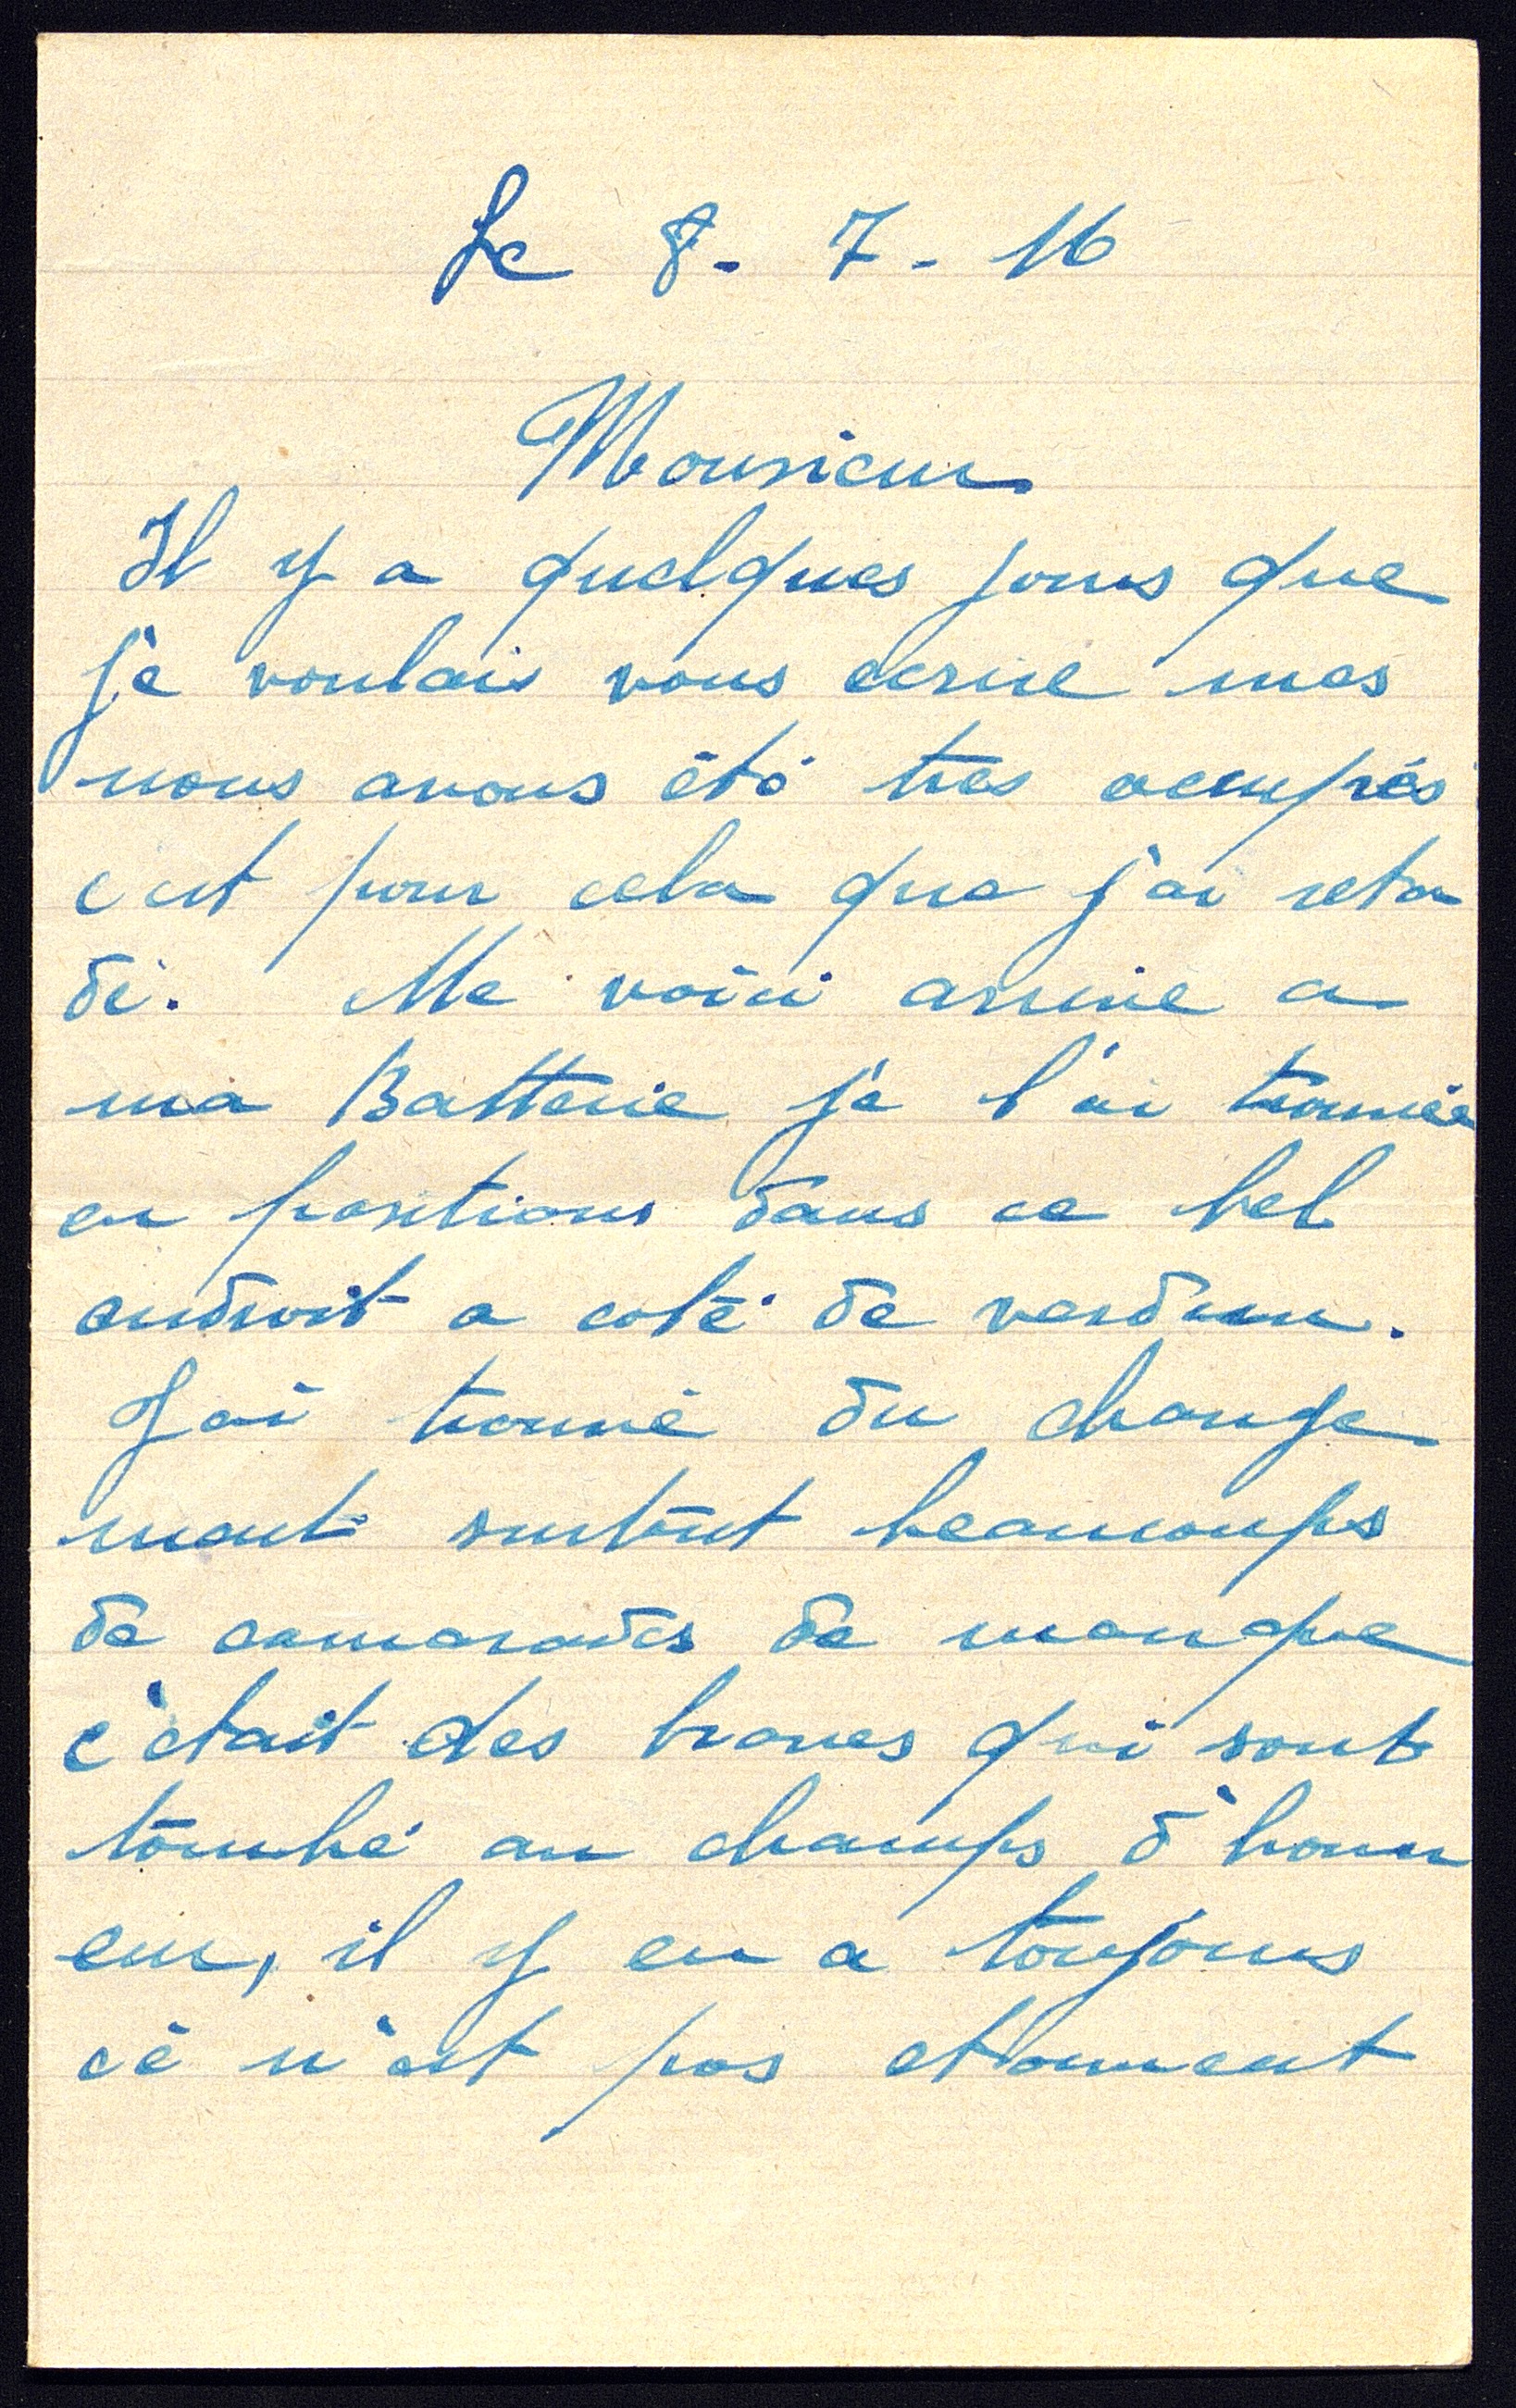 Le 8. 7. 16
Monsieur
Il y a quelques jours que
je voulais vous ecrire mes
nous avons été tres occupés
c'est pour cela que j'ai reta
dé. Me voici arrivé a
ma Batterie je l'ai trouvée
en positions dans ce bel
endroit a coté de verdun.
J'ai trouvé du change
ment surtout beaucoups
de camarades de manque
c'était des braves qui sont
tombé au champs d'honn
eur, il y en a toujours
cé n'est pas etonnent